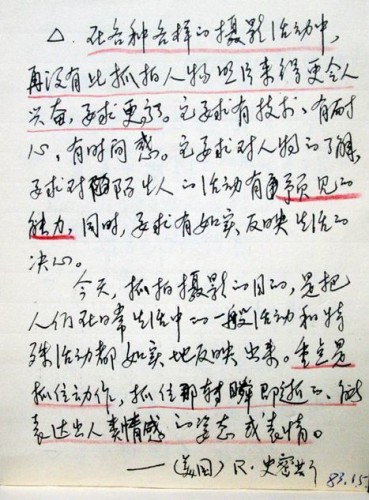 △. 在各种各样的摄影活动中,
再没有比抓拍人物照片来得更令人
兴奋,要求更高。它要求有技术、有耐
心,有时间感。它要求对人物的了解,
要求对陌生人的活动有预见的
能力,同时,要求有如实反映生活的
决心。
今天,抓拍摄影的目的,是把
人们在日常生活中的一般活动和特
殊活动都如实地反映出来。重点是
抓住动作,抓住那转瞬即逝的、能
表达出人类情感的姿态或表情。
——(美国)R·史密斯
83.15.